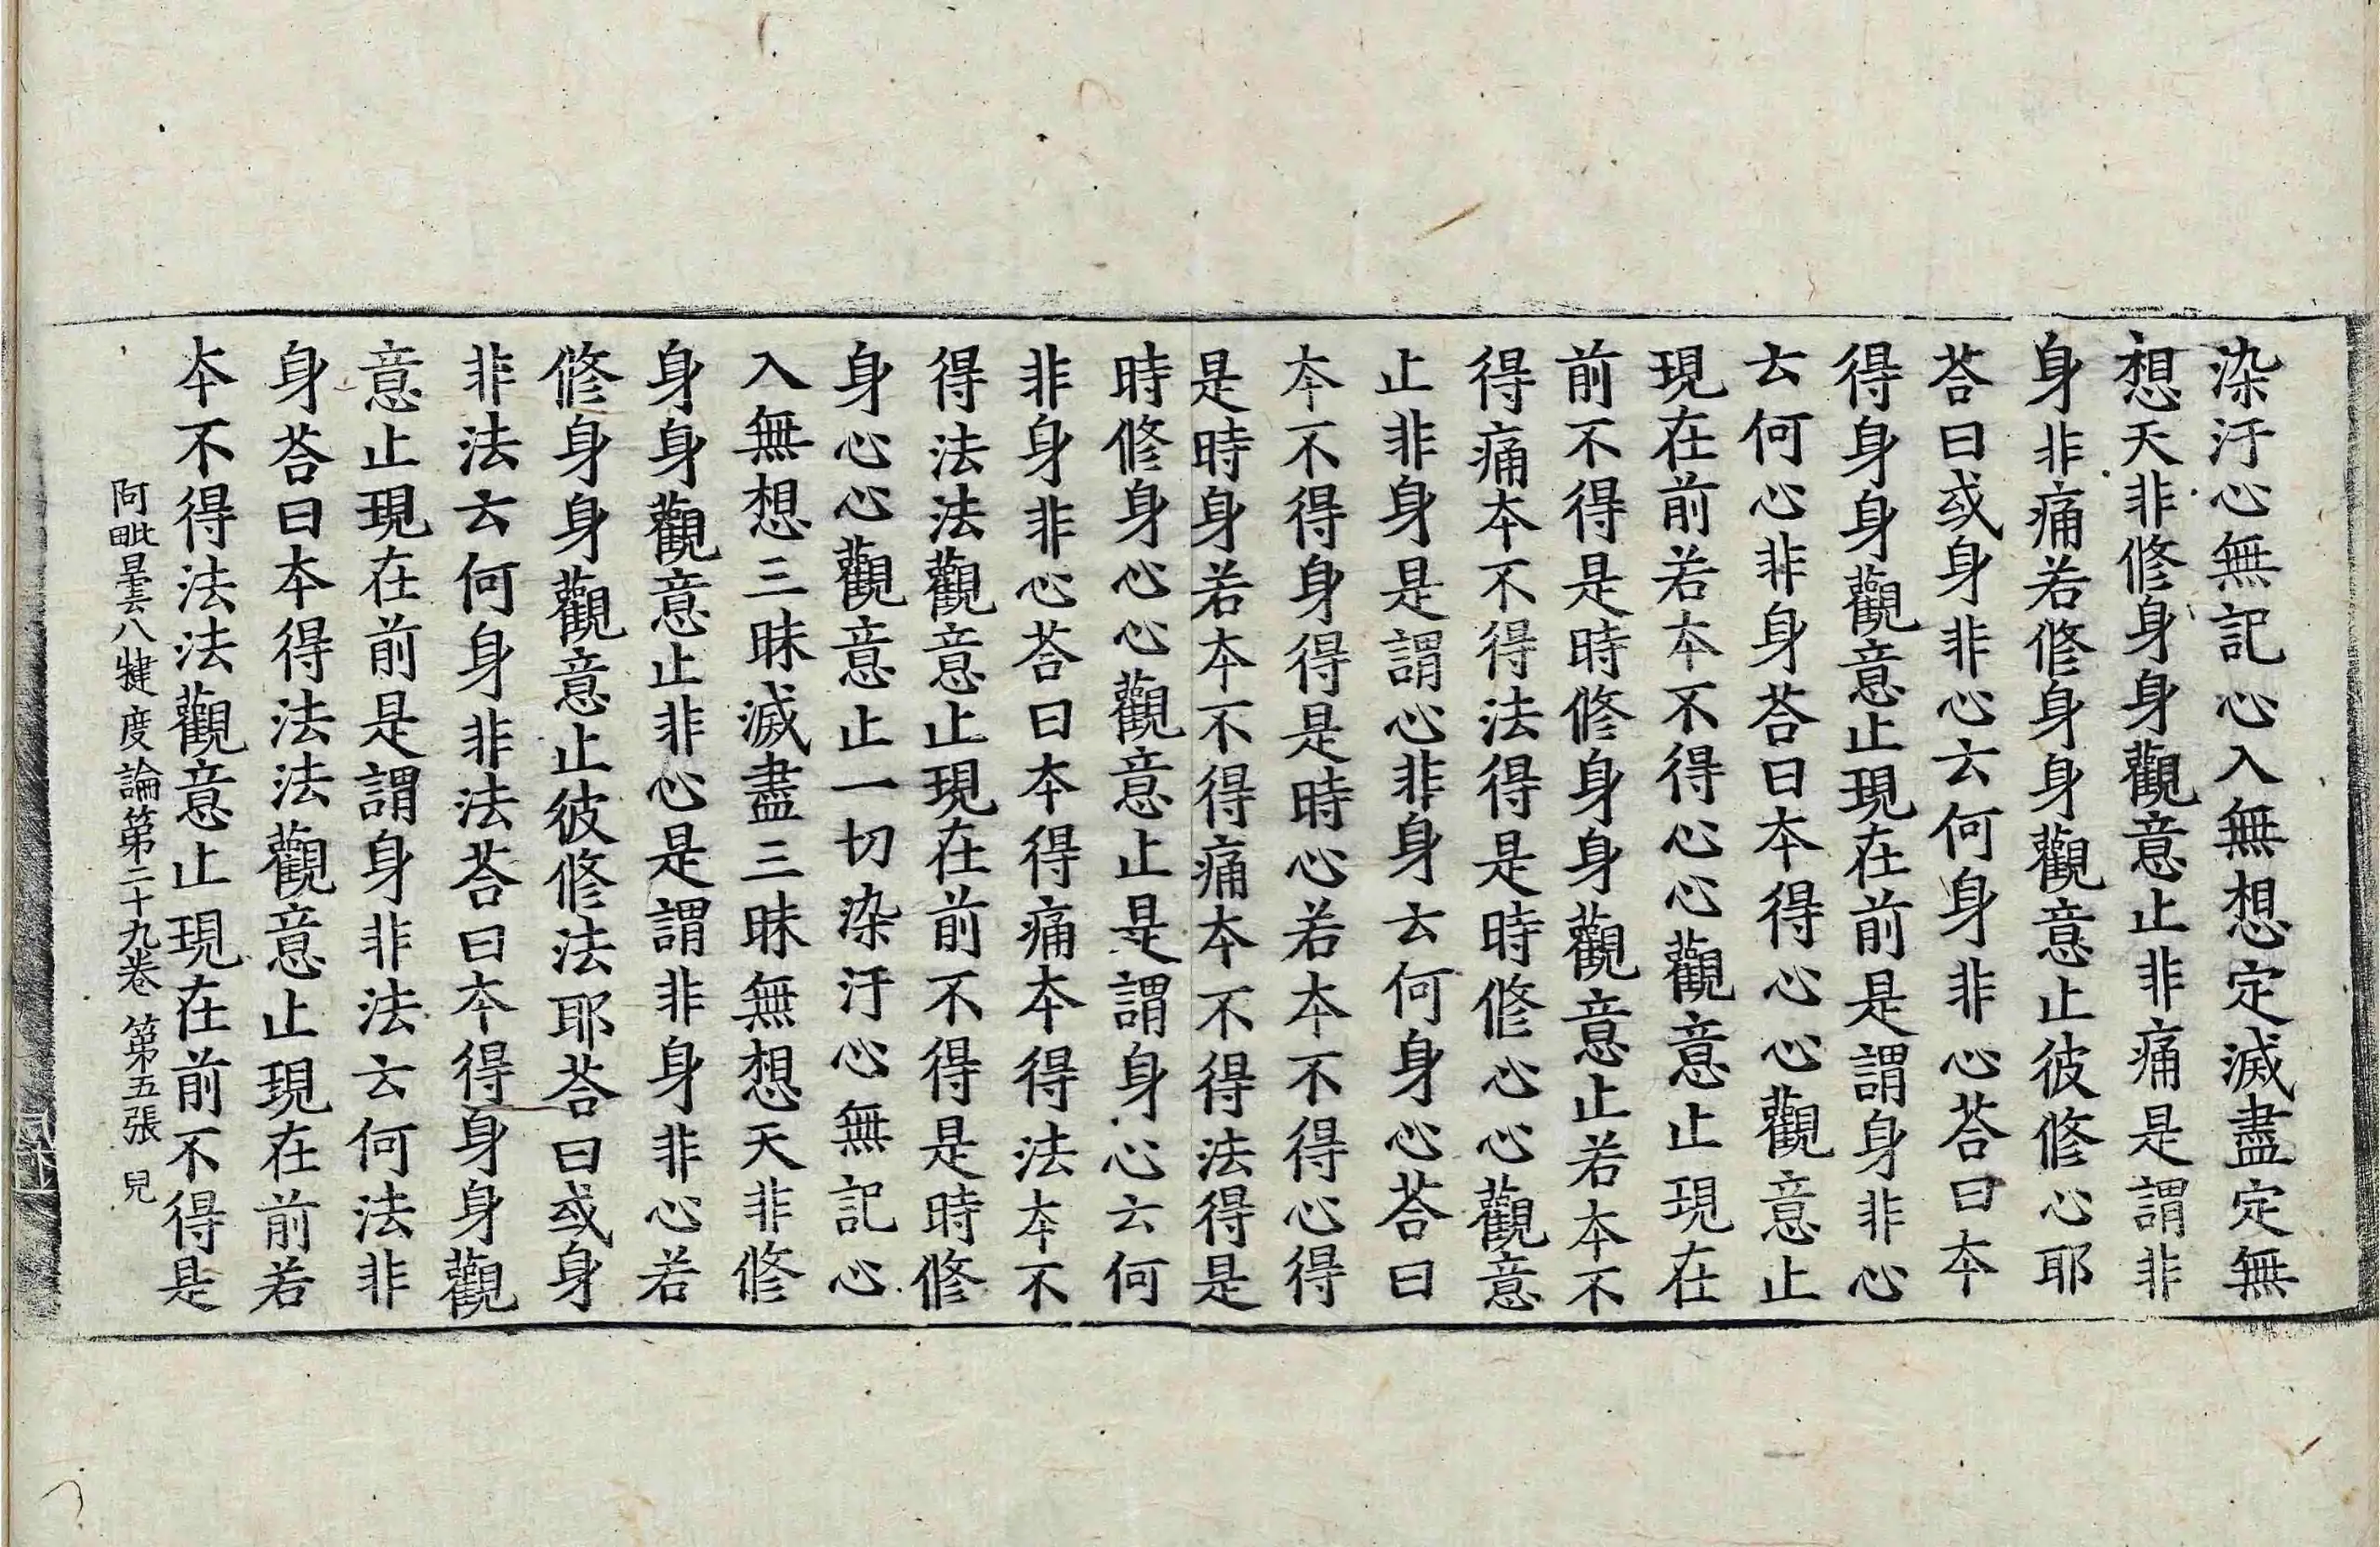 染汙心無記心入無想定滅盡定無
想天非修身身觀意止非痛是謂非
身非痛若修身身觀意止彼修心耶
荅曰或身非心云何身非心荅曰夲
得身身觀意止現在前是謂身非心
云何心非身荅曰本得心心觀意止
現在前若本不得心心觀意止現在
前不得是時修身身觀意止若本不
得痛本不得法得是時修心心觀意
止非身是謂心非身云何身心荅曰
夲不得身得是時心若本不得心得
是時身若本不得痛本不得法得是
時修身心心觀意止是謂身心云何
非身非心荅曰本得痛本得法本不
得法法觀意止現在前不得是時修
身心心觀意止一切染汙心無記心
入無想三昧滅盡三昧無想天非修
身身觀意止非心是謂非身非心若
修身身觀意止彼修法耶荅曰或身
非法云何身非法荅曰夲得身身觀
意止現在前是謂身非法云何法非
身荅曰夲得法法觀意止現在前若
夲不得法法觀意止現在前不得是
阿毗曇八犍度論第二十九卷 第五張 兒